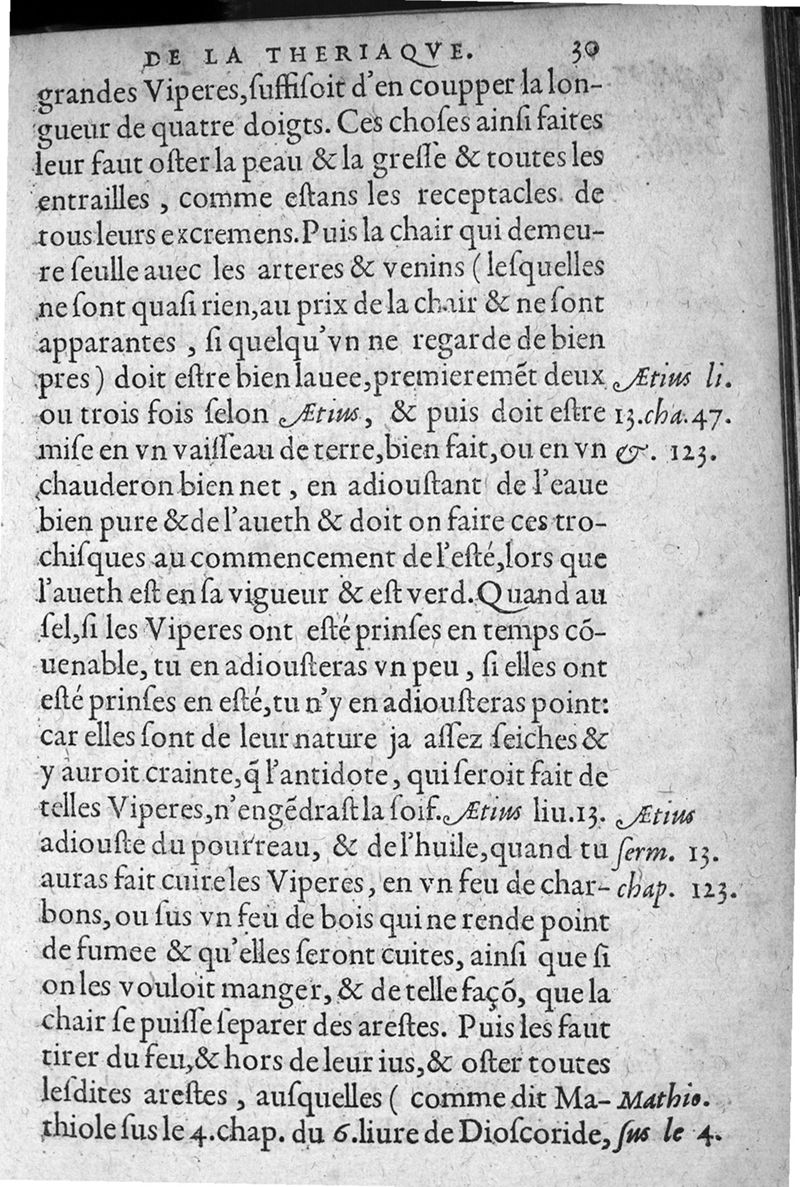 DE LA THERIAQVE. 30
grandes Viperes,ſuffiſoit d'en coupper la lon-
gueur de quatre doigts. Ces choſes ainſi faites
leur faut oſter la peau & la greſſe & toutes les
entrailles , comme eſtans les receptacles de
tous leurs excremens. Puis la chair qui demeu-
re ſeulle auec les arteres & venins ( leſquelles
ne ſont quaſi rien,au prix de la chair & ne ſont
apparantes , ſi quelqu'vn ne regarde de bien
pres ) doit eſtre bien lauee,premieremẽt deux Ætius li.
ou trois fois ſelon Ætius, & puis doit eſtre 13.cha.47.
miſe en vn vaiſſeau de terre,bien fait,ou en vn &. 123.
chauderon bien net , en adiouſtant de l'eaue
bien pure & de l'aueth & doit on faire ces tro-
chiſques au commencement de l'eſté,lors que
l'aueth eſt en ſa vigueur & eſt verd. Quand au
ſel,ſi les Viperes ont eſté prinſes en temps cõ-
uenable, tu en adiouſteras vn peu , ſi elles ont
eſté prinſes en eſté,tu n'y en adiouſteras point:
car elles ſont de leur nature ja aſſez ſeiches &
y auroit crainte,q̃ l'antidote, qui ſeroit fait de
telles Viperes,n'engẽdraſt la ſoif. Ætius liu.13. Ætius
adiouſte du pourreau, & de l'huile,quand tu ſerm. 13.
auras fait cuire les Viperes, en vn feu de char- chap. 123.
bons, ou ſus vn feu de bois qui ne rende point
de fumee & qu'elles ſeront cuites, ainſi que ſi
on les vouloit manger, & de telle façõ, que la
chair ſe puiſſe ſeparer des areſtes. Puis les faut
tirer du feu,& hors de leur ius,& oſter toutes
leſdites areſtes , auſquelles ( comme dit Ma- Mathio.
thiole ſus le 4.chap. du 6.liure de Dioſcoride, ſus le 4.